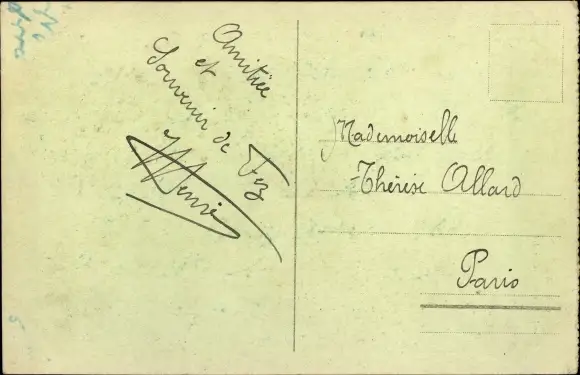 Amitiée
et
Souvenir de Fez
Mademoiselle
Thérèse Allard
Paris